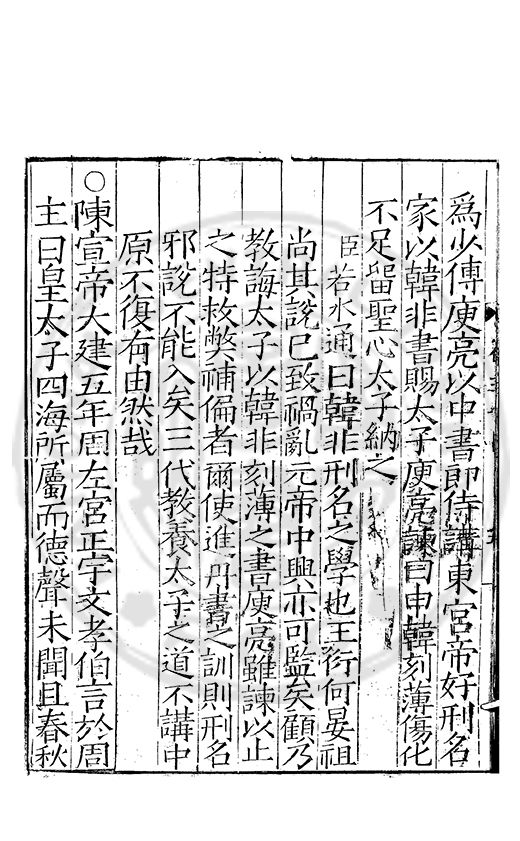 爲少傅庾亮以中書郎侍講東宫帝好刑名
家以韓非書賜太子庾亮諫曰申韓刻薄傷化
不足留聖心太子納之
臣若水通曰韓非刑名之學也王衍何晏祖
尚其說已致禍亂元帝中興亦可監矣顧乃
教誨太子以韓非刻薄之書庾亮雖諫以止
之特救弊補偏者爾使進丹書之訓則刑名
邪說不能入矣三代教養太子之道不講中
原不復有由然哉
○陳宣帝大建五年周左宫正宇文孝伯言於周
主曰皇太子四海所屬而德聲未聞且春秋